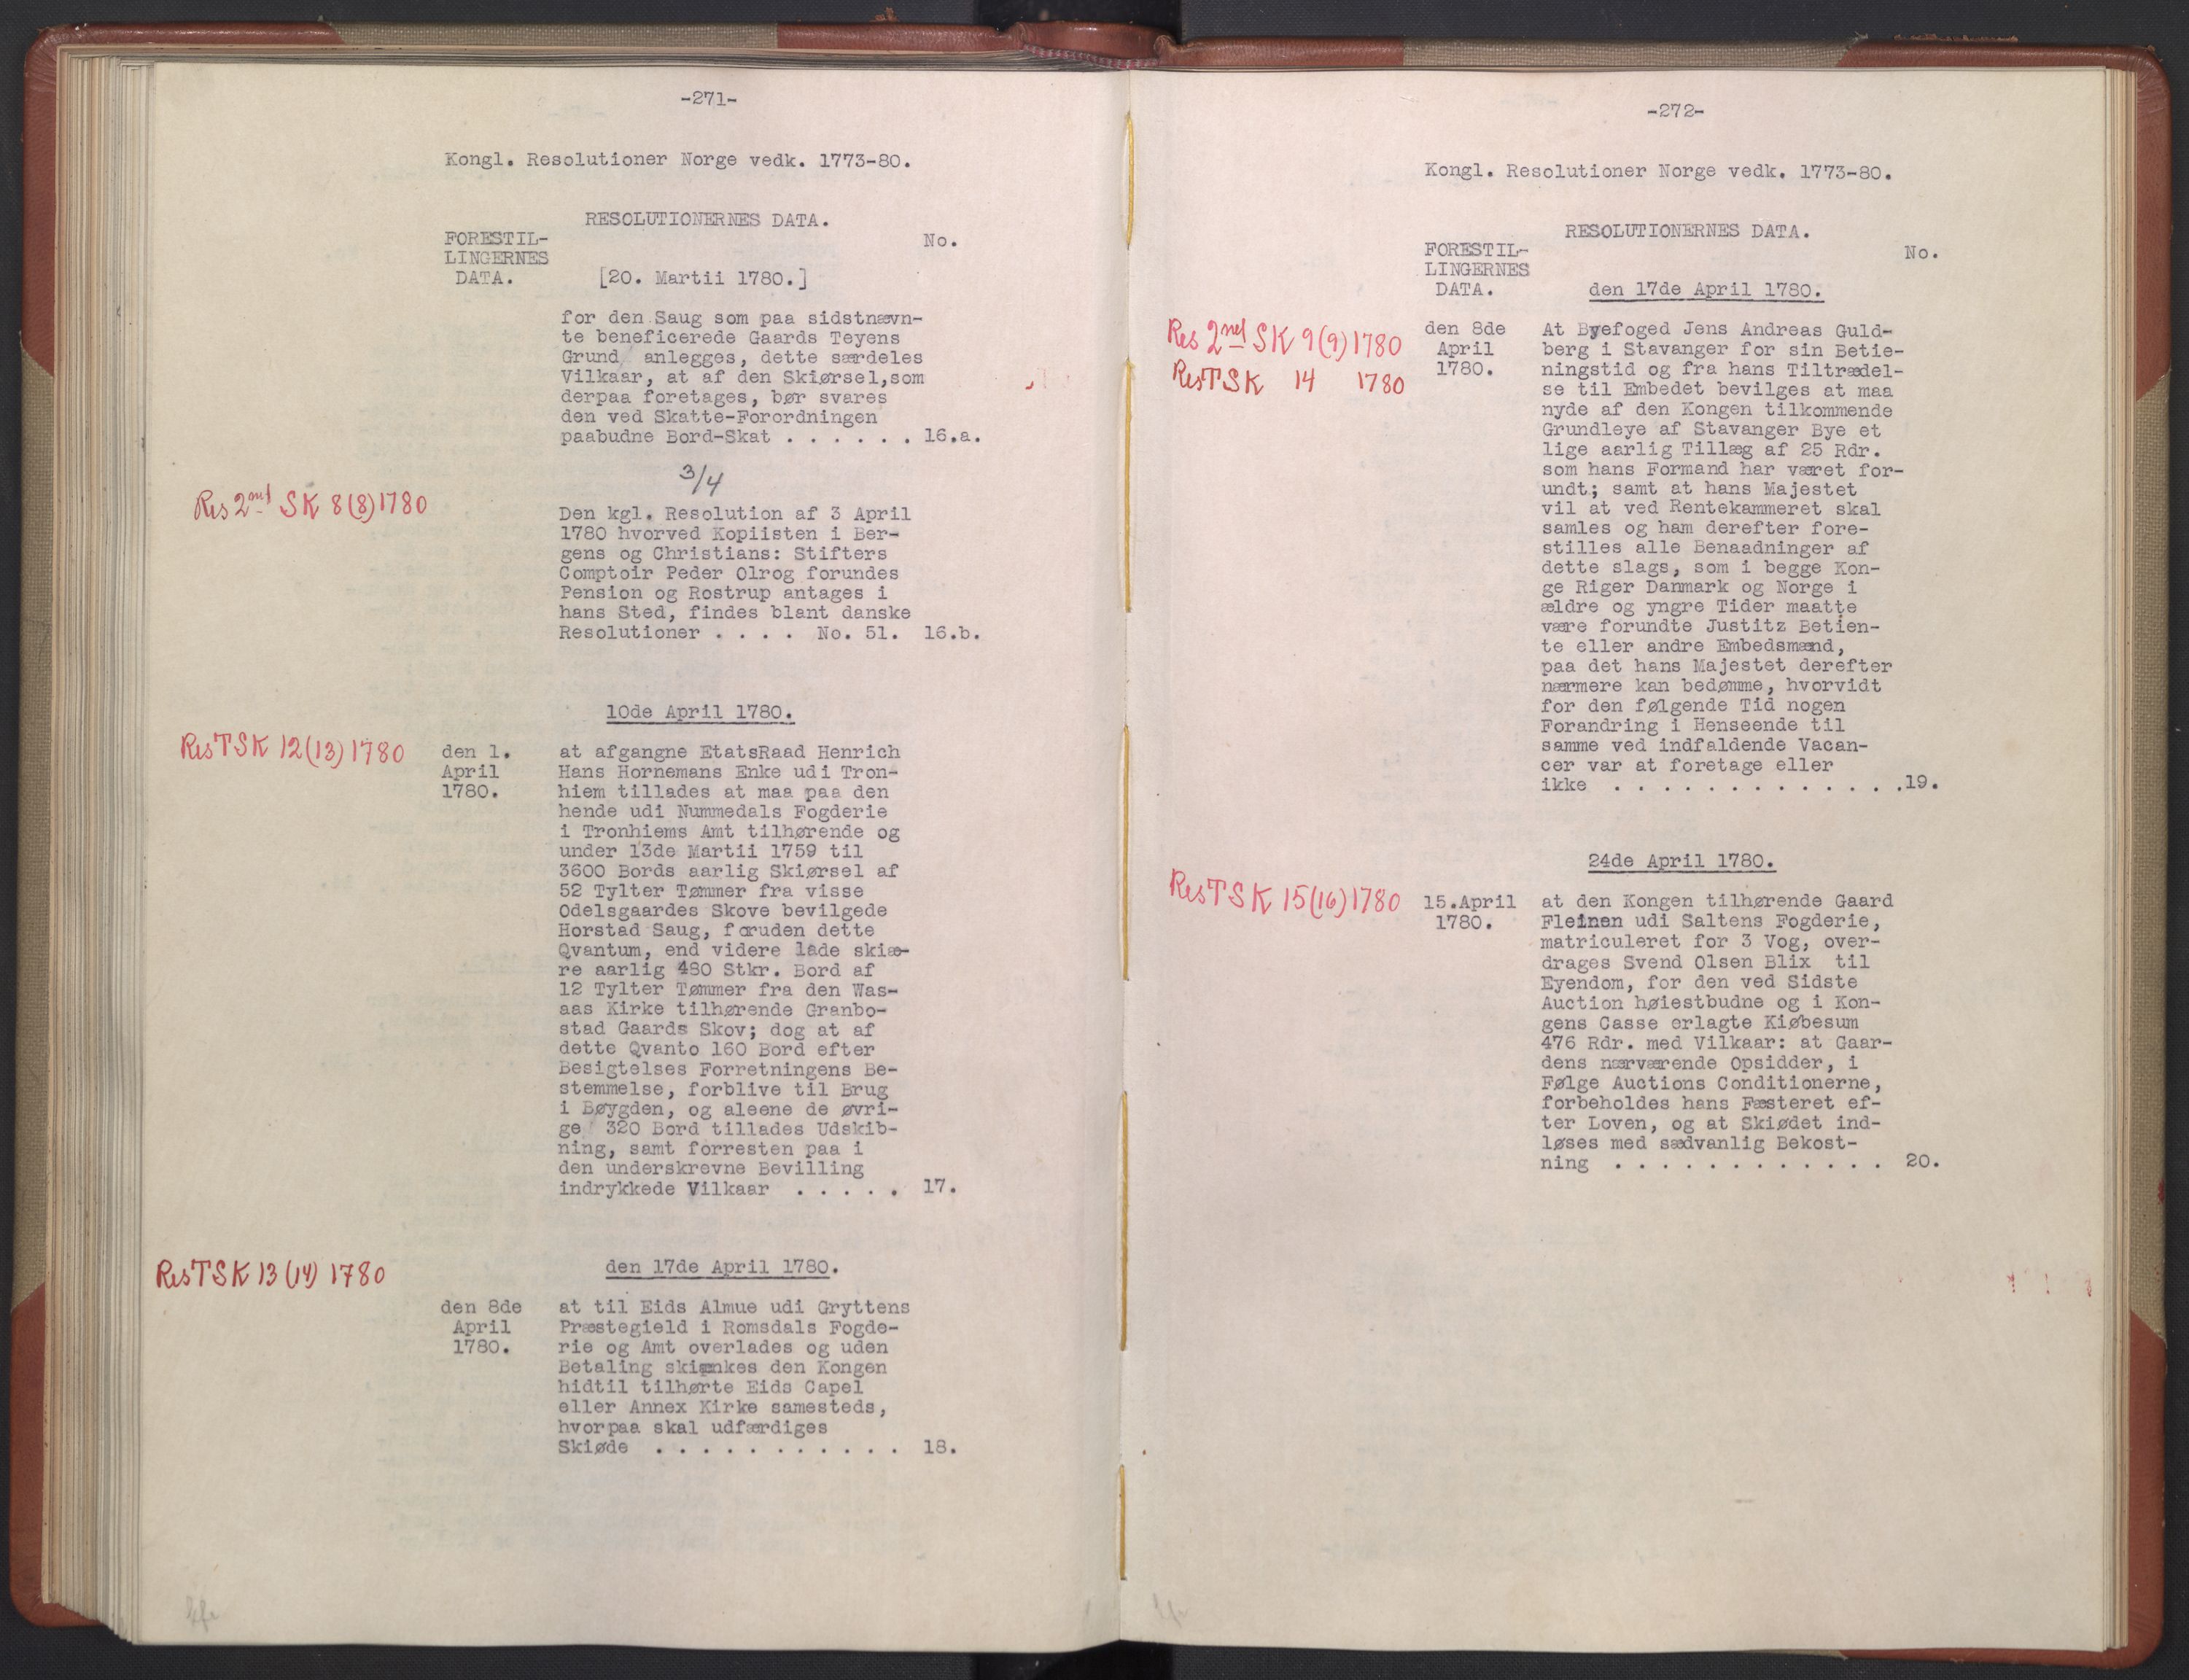 -271-
Kongl. Resolutioner Norge vedk. 1773-80.
RESOLUTIONERNES DATA.
FORESTIL-
LINGERNES
DATA.
No.
[20. Martii 1780.]
for den Saug som paa sidstnævn-
te beneficerede Gaards Teyens
Grund anlegges, dette særdeles
Vilkaar, at af den Skiørsel,som
derpaa foretages, bør svares
den ved Skatte-Forordningen
paabudne Bord-Skat . . . . . . 16.a.
3/4
Res 2net SK 8(8)1780
Den kgl. Resolution af 3 April
1780 hvorved Kopiisten i Ber-
gens og Christians: Stifters
Comptoir Peder Olrog forundes
Pension og Rostrup antages i
hans Sted, findes blant danske
Resolutioner . . . . No. 51. 16.b.
10de April 1780.
ResTSK 12(13)1780
den 1.
April
1780.
at afgangne EtatsRaad Henrich
Hans Hornemans Enke udi Tron-
hiem tillades at maa paa den
hende udi Nummedals Fogderie
i Tronhiems Amt tilhørende og
under 13de Martii 1759 til
3600 Bords aarlig Skiørsel af
52 Tylter Tømmer fra visse
Odelsgaardes Skove bevilgede
Horstad Saug, foruden dette
Qvantum, end videre lade skiæ-
re aarlig 480 Stkr. Bord af
12 Tylter Tømmer fra den Was-
aas Kirke tilhørende Granbo-
stad Gaards Skov; dog at af
dette Qvanto 160 Bord efter
Besigtelses Forretningens Be-
stemmelse, forblive til Brug
i Bøygden, og aleene de øvri-
ge 320 Bord tillades Udskib-
ning, samt forresten paa i
den underskrevne Bevilling
indrykkede Vilkaar . . . . . 17.
den 17de April 1780.
ResTSK 13(14) 1780
den 8de
April
1780.
at til Eids Almue udi Gryttens
Præstegield i Romsdals Fogde-
rie og Amt overlades og uden
Betaling skiænkes den Kongen
hidtil tilhørte Eids Capel
eller Annex Kirke samesteds,
hvorpaa skal udfærdiges
Skiøde . . . . . . . . . . . 18.
-272-
Kongl. Resolutioner Norge vedk. 1773-80.
RESOLUTIONERNES DATA.
FORESTIL-
LINGERNES
DATA.
No.
den 17de April 1780.
Res 2net SK 9(9)1780
ResTSK 14 1780
den 8de
April
1780.
At Byefoged Jens Andreas Guld-
berg i Stavanger for sin Betie-
ningstid og fra hans Tiltrædel-
se til Embedet bevilges at maa
nyde af den Kongen tilkommende
Grundleye af Stavanger Bye et
lige aarlig Tillæg af 25 Rdr.
som hans Formand har været for-
undt; samt at hans Majestet
vil at ved Rentekammeret skal
samles og ham derefter fore-
stilles alle Benaadninger af
dette slags, som i begge Kon-
ge Riger Danmark og Norge i
ældre og yngre Tider maatte
være forundte Justitz Betien-
te eller andre Embedsmænd,
paa det hans Majestet derefter
nærmere kan bedømme, hvorvidt
for den følgende Tid nogen
Forandring i Henseende til
samme ved indfaldende Vacan-
cer var at foretage eller
ikke . . . . . . . . . . . . .19.
24de April 1780.
ResTSK 15(16)1780
15.April
1780.
at den Kongen tilhørende Gaard
Fleinen udi Saltens Fogderie,
matriculeret for 3 Vog, over-
drages Svend Olsen Blix til
Eyendom, for den ved Sidste
Auction høiestbudne og i Kon-
gens Casse erlagte Kiøbesum
476 Rdr. med Vilkaar: at Gaar-
dens nærværende Opsidder, i
Følge Auctions Conditionerne,
forbeholdes hans Fæsteret ef-
ter Loven, og at Skiødet ind-
løses med sædvanlig Bekost-
ning . . . . . . . . . . . . 20.